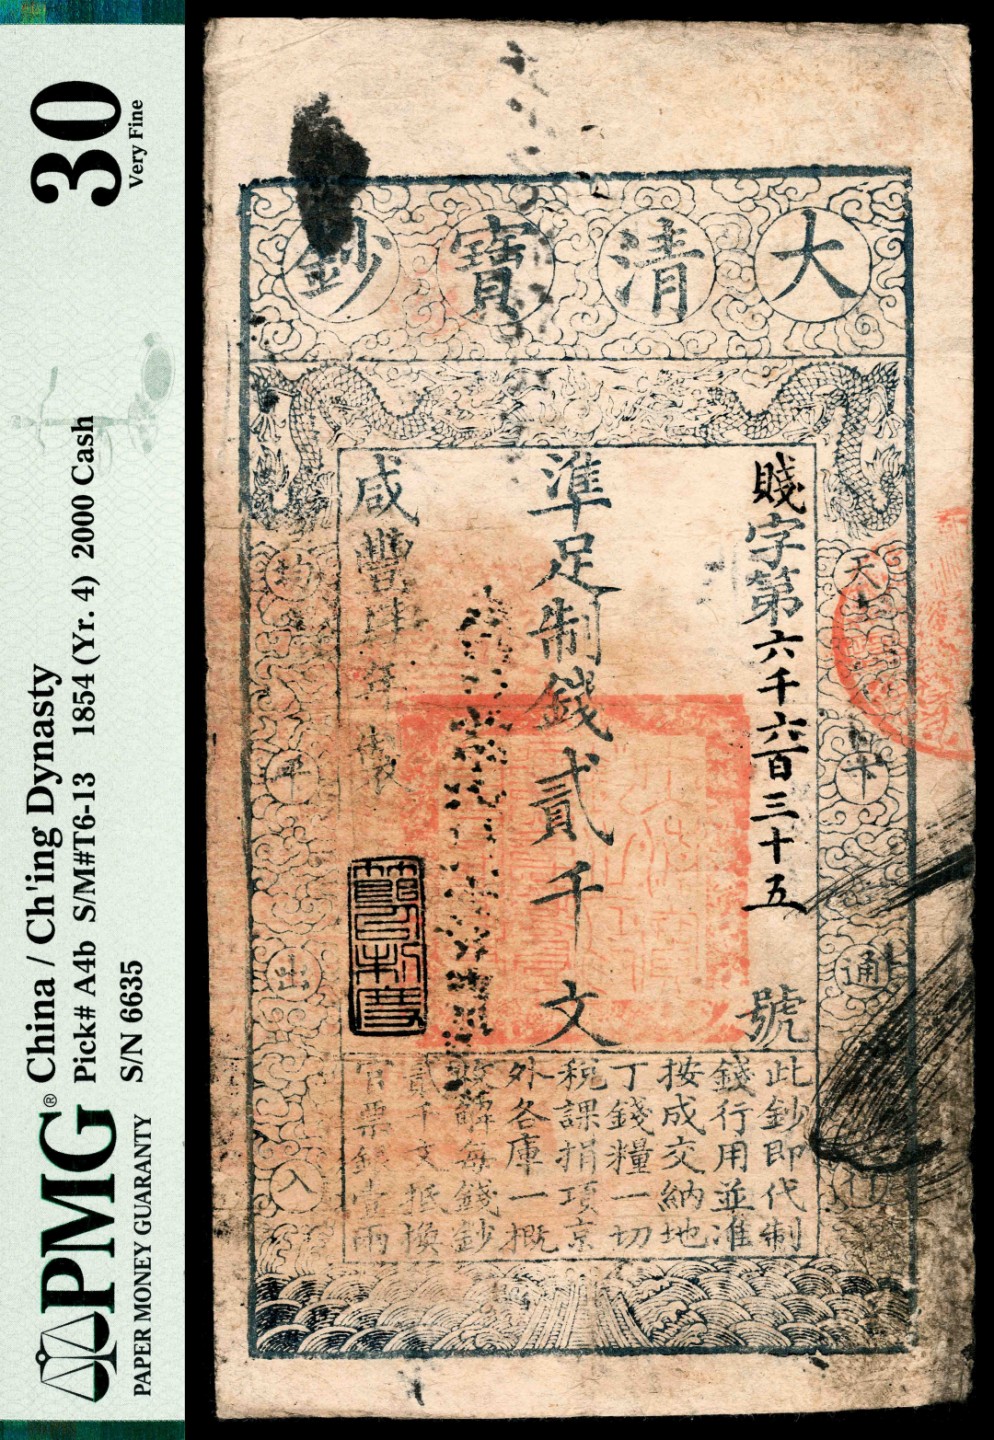 PMG®
PAPER MONEY GUARANTY
China / Ch'ing Dynasty
Pick# A4b S/M#T6-13 1854 (Yr. 4) 2000 Cash
S/N 6635
30
Very Fine
大清寶鈔
天下通行
賤字第六千六百三十五號
準足制錢貳千文
咸豐肆年製
均平出入
此鈔即代制
錢行用並准
按成交納地
丁錢糧一切
稅課捐項京
外各庫一概
收解每錢鈔
貳千文抵換
官票銀壹兩